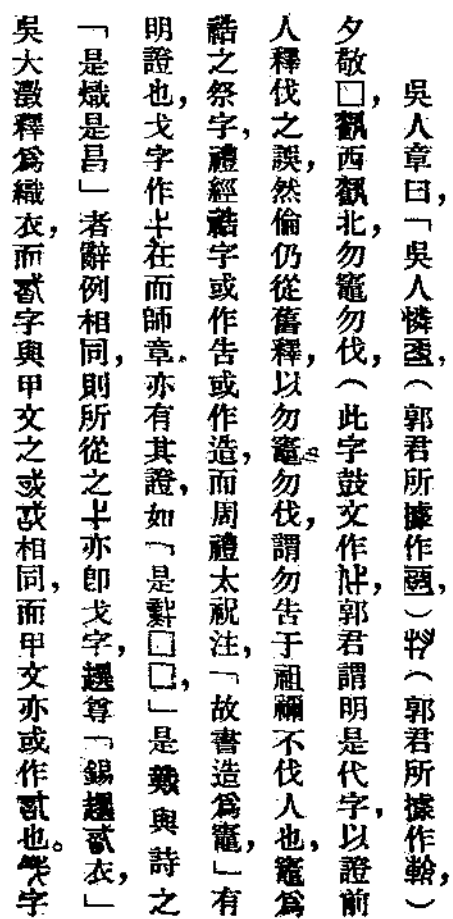 吳人章曰，「吳人憐，（郭君所據作，）（郭君所據作，）
夕敬□，西北，勿竈勿伐，（此字鼓文作，郭君謂明是代字，以證前
人釋伐之誤，然倫仍從舊釋，以勿竈勿伐，謂勿告于祖禰不伐人也，竈爲
祰之祭字，禮經祰字或作告或作造，而周禮太祝注，「故書造爲竈，」有
明證也，戈字作在而師章，亦有其證，如「是□□，」是與詩之
「是熾是昌」者辭例相同，則所從之亦卽戈字，趩尊「錫趩衣，」
吳大澂釋爲織衣，而字與甲文之或相同，而甲文亦或作也。字